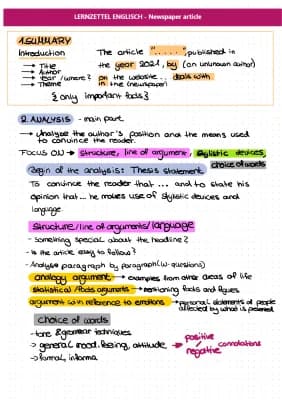 LERNZETTEL ENGLISCH - Newspaper article
1.SUMMARY
Introduction The article ".....", published in
→ Title the year 2021, by (an unknown author)
→ Author
→ Year / where? on the website... deals with
→ Theme in the (newspaper)
{ only important facts }
2. ANALYSIS - main part
→ Analyse the author's position and the means used
to convince the reader.
FOCUS ON → structure, line of argument, stylistic devices,
choice of words
Begin of the analysis: Thesis statement
To convince the reader that ... and to state his
opinion that ... he makes use of stylistic devices and
language.
Structure/line of arguments/language
- something special about the headline?
- is the article easy to follow?
- Analyse paragraph by paragraph (w-questions)
analogy argument → examples from other areas of life
statistical/facts arguments → mentioning facts and figures
argument with reference to emotions → personal statements of people
affected by what is presented
choice of words
- tone & grammar techniques
→ general mood, feeling, attitude → positive
negative connotations
→ formal, informal